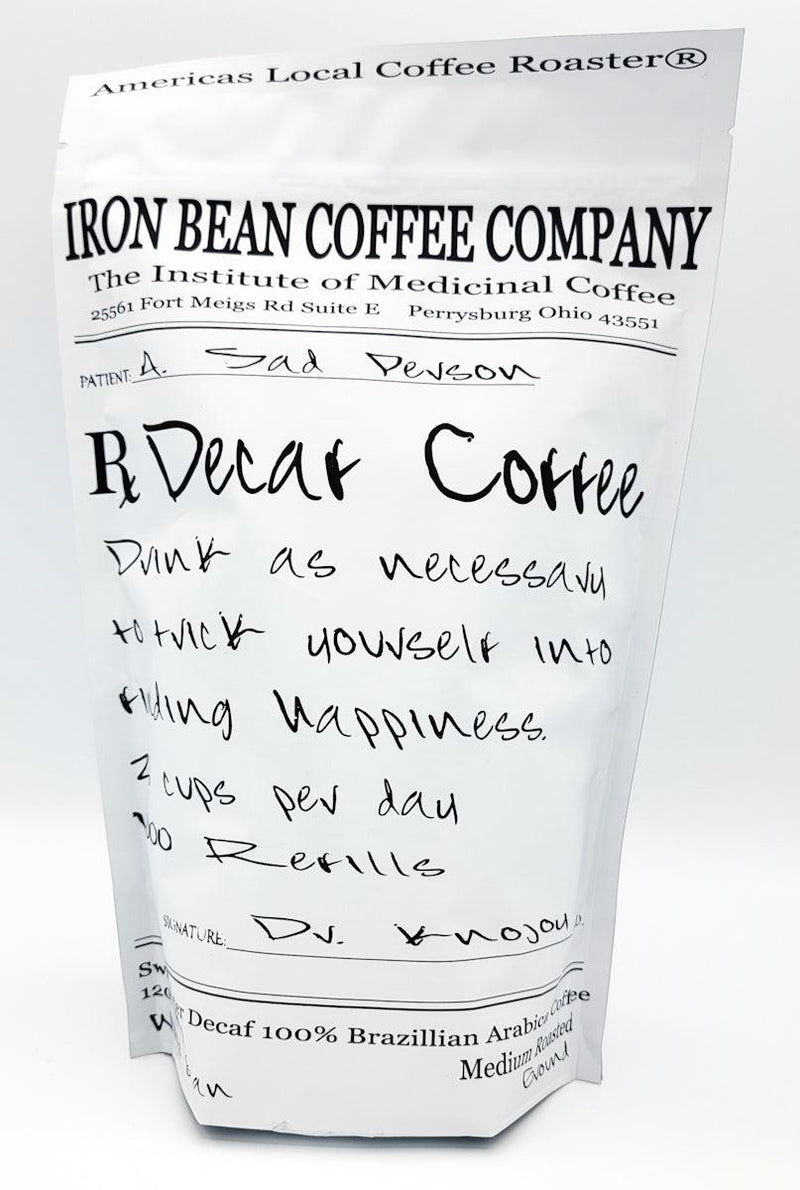 Americas Local Coffee Roaster®
IRON BEAN COFFEE COMPANY
The Institute of Medicinal Coffee
25561 Fort Meigs Rd Suite E Perrysburg Ohio 43551
PATIENT: A. Sad Person
Rx Decaf Coffee
Drink as necessary
to trick yourself into
finding happiness.
cups per day
Refills
SIGNATURE: Dr. Knojoy
Decaf 100% Brazillian Arabica Coffee
Medium Roasted
Ground